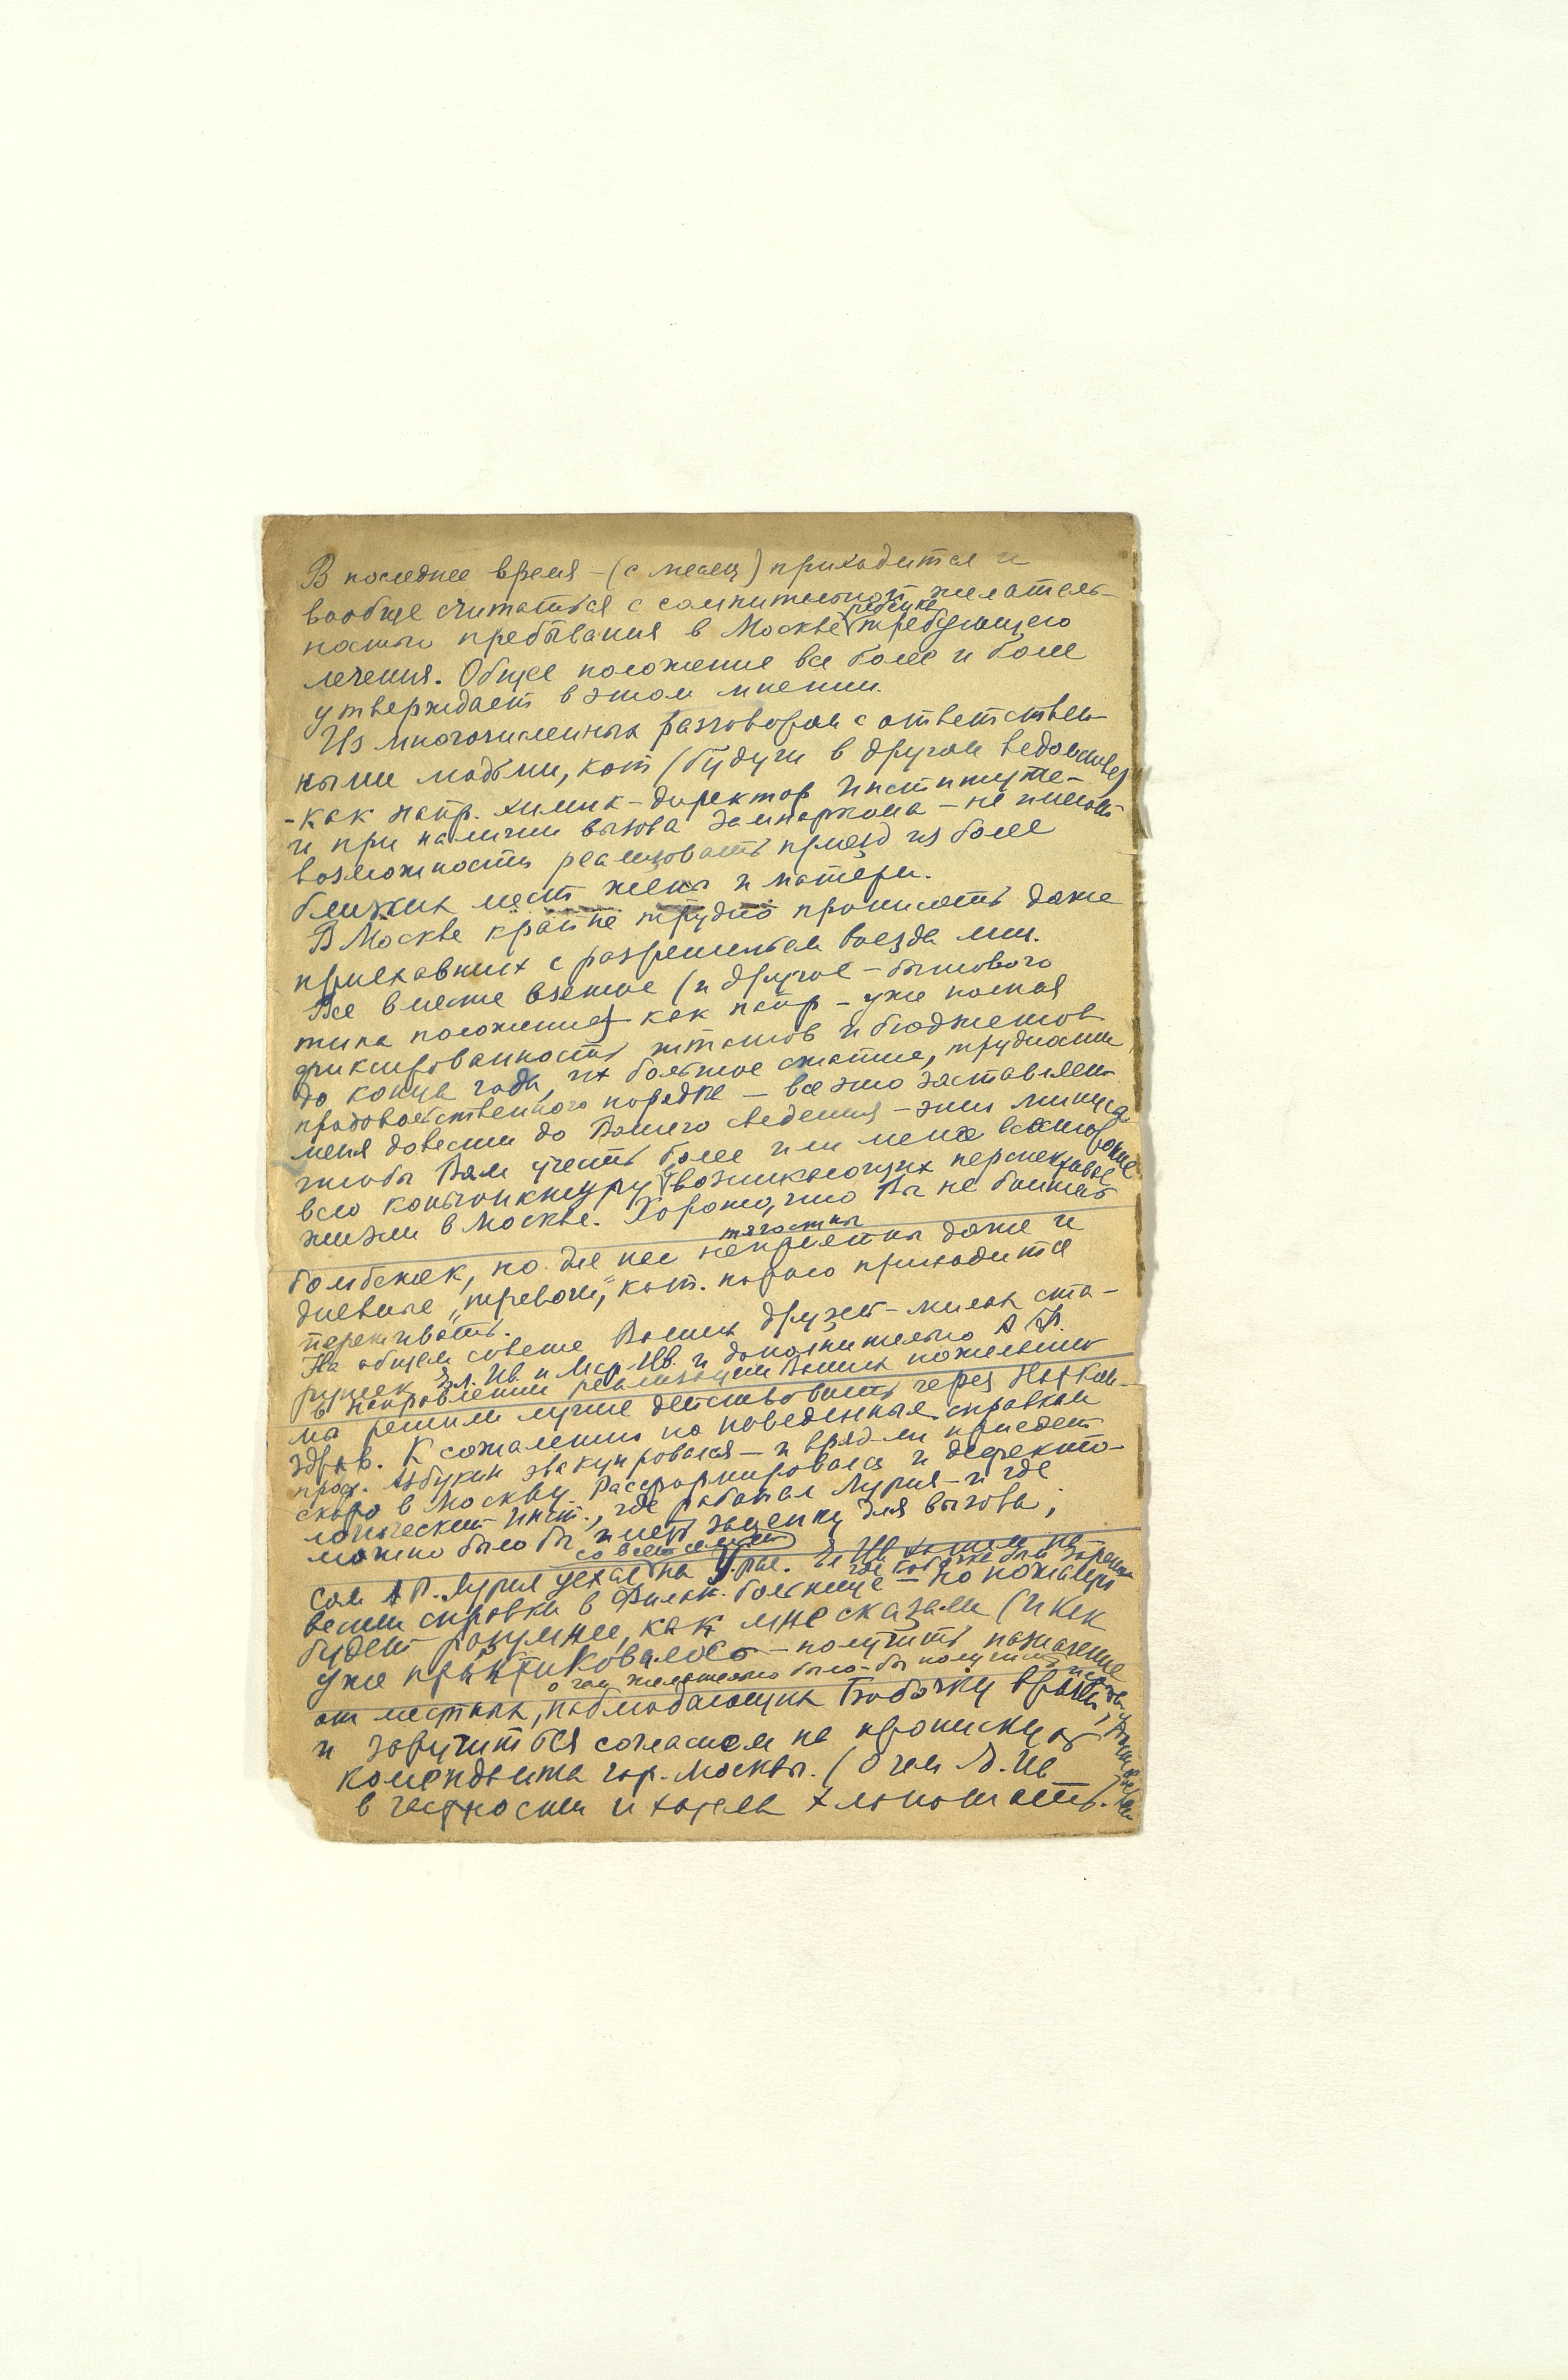 В последнее время – (с месяц) приходится и
вообще считаться с сомнительной желатель-
ностью пребывания в Москве ребенка требующего
лечения. Общее положение все более и более
утверждает в этом мнении.
Из многочисленных разговоров с ответствен-
ными людьми, кот (будучи в другом ведомстве)
– как напр. химик – директор Института –
и при наличии вызова замнаркома – не имеют
возможности реализовать приезд из более
ближних мест жены и матери.
В Москве крайне трудно прописать даже
приехавших с разрешением въезда лиц.
Все вместе взятое (и другое – бытового
типа положение) как напр – уже полная
фиксированность штатов и бюджетов
до конца года, их большое сжатие, трудности
продовольственного порядка – все это заставляет
меня довести до Вашего сведения – эти минуса
чтобы Вам учесть более или менее всесторонне
всю конъюнктуру возникающих перспектив
жизни в Москве. Хорошо, что Вы не боитесь
бомбежек, но для нас тягостны неприятны даже и
дневные „тревоги“, кот. порою приходится
переживать.
На общем совете Ваших друзей – милых ста-
рушек Эл. Ив. и Мар. Ив. и дополнительно А Ф.
в направлении реализации Ваших пожеланий
мы решили лучше действовать через Нарком-
здрав. К сожалению по наведенным справкам
проф. Азбукин эвакуировался – и вряд-ли приедет
скоро в Москву. Расформировался и дефекто-
логический Инст., где работал Лурия – и где
можно было бы иметь зацепку для вызова;
сам А Р. Лурия уехал со всей семьей на Урал.
вести справки в больнице – но пожалуй
будет разумнее, как мне сказали (и как
уже практиковалось – получить назначение
о чем желательно было-бы получить
от местных, наблюдающих Бобочку врачей,
и заручиться согласием на прописку от
коменданта гор. Москвы. (О чем Э. Ив
в частности и хотела хлопотать.)